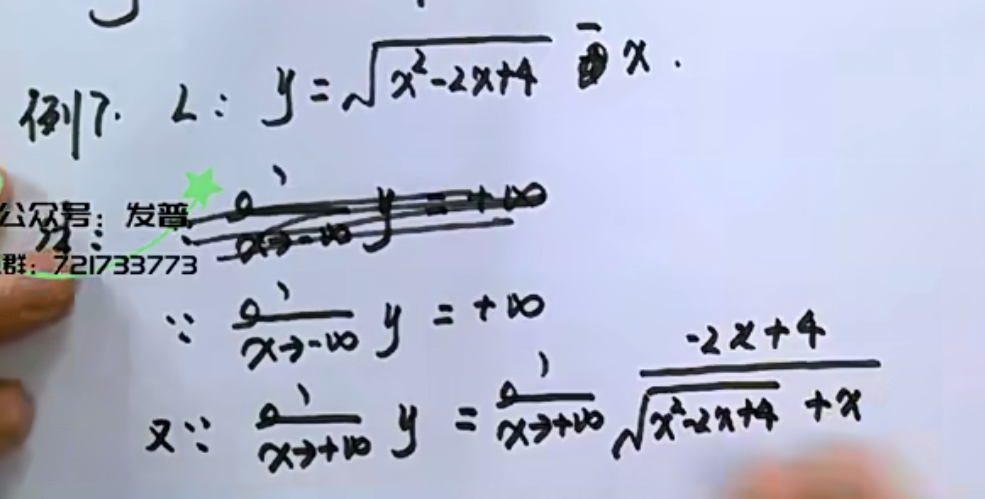 例7. L: y=√(x²-2x+4) - x.
x→-∞ y=+∞
公众号：发普
群：721733773
∵ lim x→-∞ y = +∞
又∵ lim x→+∞ y = lim x→+∞ (-2x+4)/(√(x²-2x+4) + x)